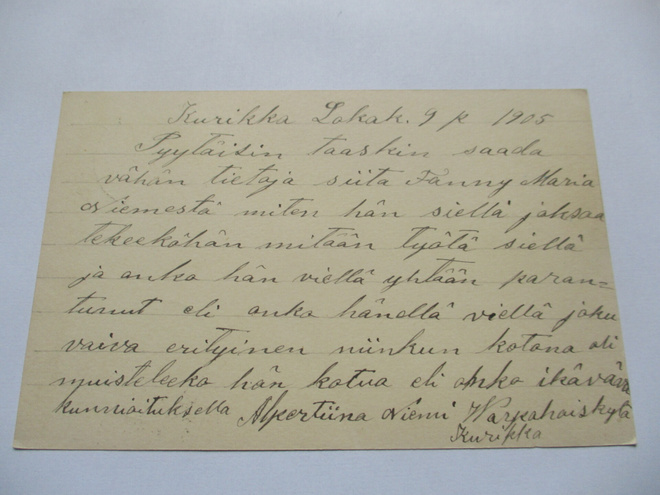 Kurikka Lokak. 9 p 1905
Pyytäisin taaskin saada
vähän tietoja siitä Fanny Maria
Niemestä miten hän siellä jaksaa
tekeeköhän mitään työtä siellä
ja onko hän viellä yhtään paran=
tunut eli onko hänellä viellä joku
vaiva erityinen niinkun kotona oli
muisteleeko hän kotua eli onko ikävä
kunnioituksella Alpertiina Niemi
Kurikka